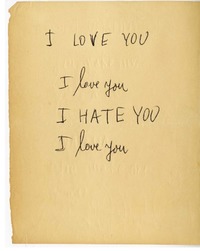 I LOVE YOU
I love you
I HATE YOU
I love you